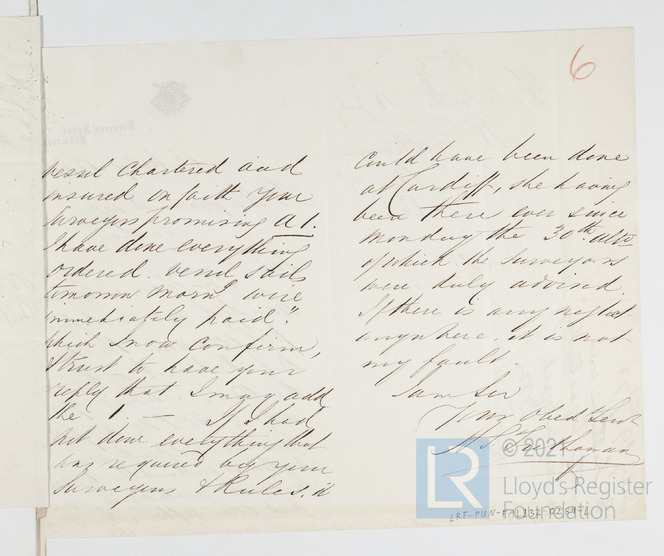 6
vessel Chartered and
insured in faith your
Surveyors promising A 1.
I have done everything
ordered. vessel sails
tomorrow Morng wire
immediately paid".
which I now confirm,
I trust to have your
reply that I may add
the 1. — If I had
not done everything that
was required by your
Surveyors & Rules, it
could have been done
at Cardiff, she having
been there ever since
Monday the 30th ulto
of which the Surveyors
were duly advised
If there is any neglect
anywhere. it is not
my fault
I am Sir
Your Obed Servt
© 2021
LR
Lloyd's Register
Foundation